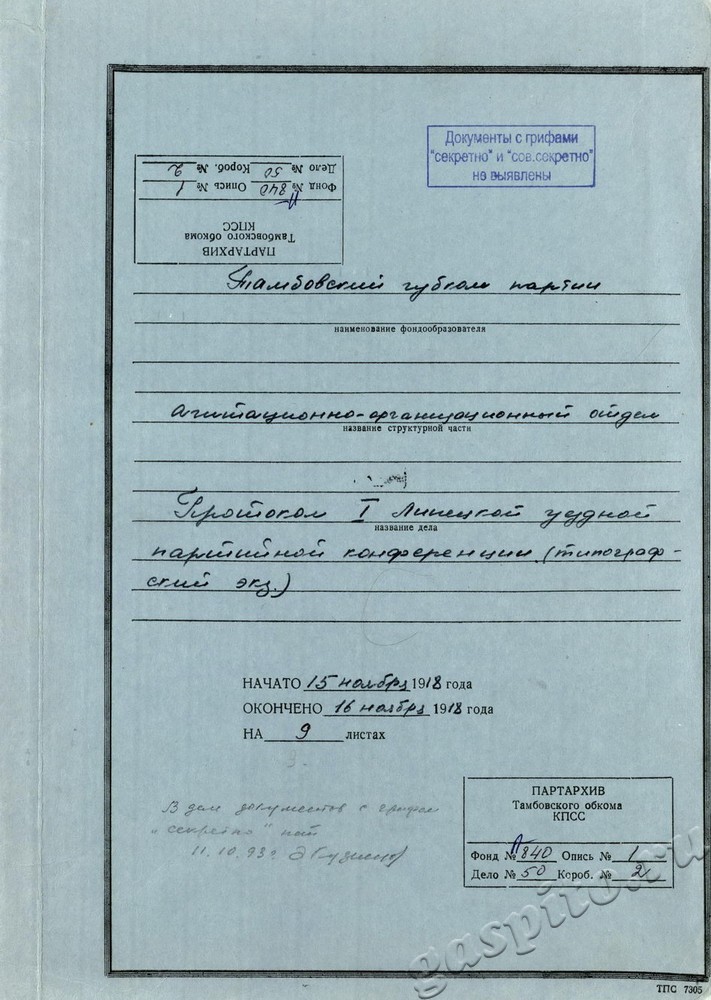 Документы с грифами
"секретно" и "сов.секретно"
не выявлены
ПАРТАРХИВ
Тамбовского обкома
КПСС
Фонд № П840 Опись № 1
Дело № 50 Короб. № 2
Тамбовский губком партии
наименование фондообразователя
Агитационно-организационный отдел
название структурной части
Протокол I Липецкой уездной
название дела
партийной конференции (типограф-
ский экз.)
НАЧАТО 15 ноября 1918 года
ОКОНЧЕНО 16 ноября 1918 года
НА 9 листах
В деле документов с грифом
"секретно" нет
11.10.93г.
ПАРТАРХИВ
Тамбовского обкома
КПСС
Фонд № П840 Опись № 1
Дело № 50 Короб. № 2
gaspito.ru
ТПС 7305